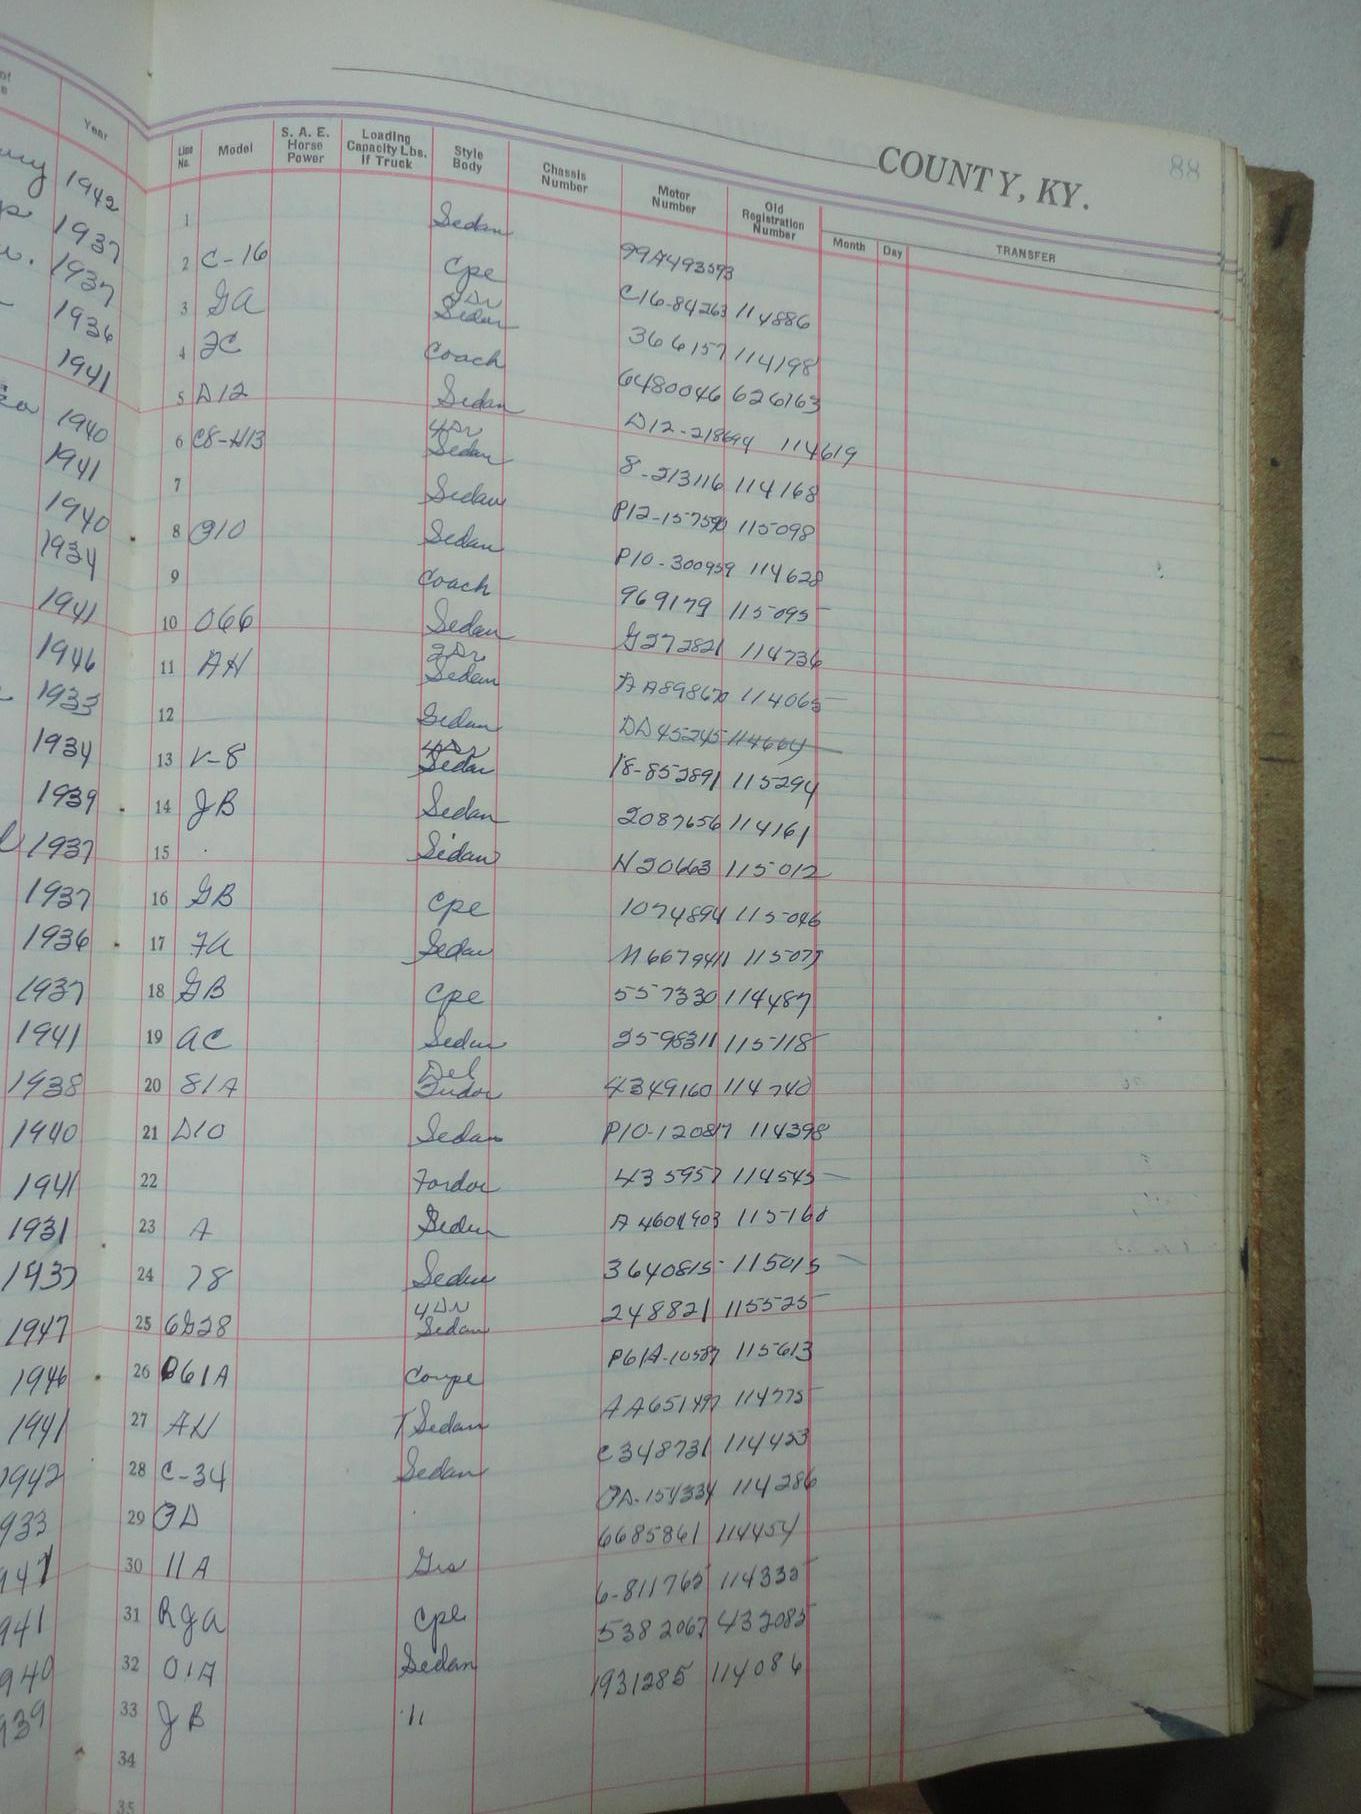 COUNTY, KY.
88
Year
Line No. Model S. A. E. Horse Power Loading Capacity Lbs. If Truck Style Body Chassis Number Motor Number Old Registration Number Month Day TRANSFER
1942 1 Sedan 99A493593
1937 2 C-16 Cpe C16-84263 114886
1937 3 GA 2Dr Sedan 366157 114198
1936 4 FC Coach 6480046 626763
1941 5 D12 Sedan D12-218694 114619
1940 6 C8-N13 4Dr Sedan 8-213116 114168
1941 7 Sedan P12-157590 115098
1940 8 P10 Sedan P10-300959 114628
1934 9 Coach 969179 115095
1941 10 066 Sedan G272821 114736
1946 11 AH 2Dr Sedan AA89867 114065
1933 12 Sedan DD45245 114664
1934 13 V-8 4Dr Sedan 18-852891 115294
1939 14 JB Sedan 2087656 114161
1937 15 Sedan N20663 115012
1937 16 GB Cpe 1074894 115046
1936 17 FA Sedan M667941 115077
1937 18 GB Cpe 557330 114487
1941 19 AC Sedan 2598311 115118
1938 20 81A Del Tudor 4349160 114740
1940 21 D10 Sedan P10-120817 114398
1941 22 Fordor 435957 114545
1931 23 A Sedan A4601903 115168
1937 24 78 Sedan 3640815 115015
1947 25 6G28 4Dr Sedan 248821 115525
1946 26 B61A Coupe P61A-10587 115613
1941 27 AH T Sedan AA651497 114775
1942 28 C-34 Sedan C348731 114423
933 29 OD OD-154334 114286
947 30 11A 6685861 114454
941 31 RJA Cpe 6-811765 114335
940 32 01A Sedan 5382067 432085
939 33 JB " 1931285 114086
34
35